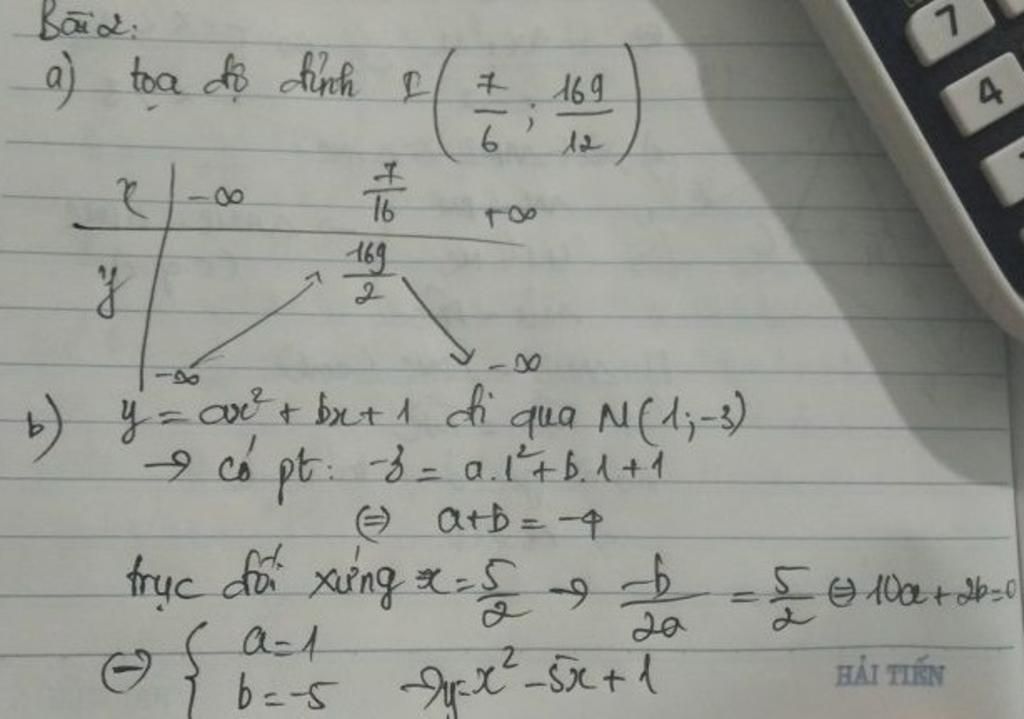 Bài 2:
a) tọa độ đỉnh I (7/6 ; 169/12)
x | -∞ 7/16 +∞
y | -∞ ↗ 169/2 ↘ -∞
b) y = ax² + bx + 1 đi qua N(1; -3)
→ có pt: -3 = a.1² + b.1 + 1
⇔ a+b = -4
trục đối xứng x = 5/2 → -b/2a = 5/2 ⇔ 10a + 2b = 0
⇔ { a = 1
b = -5 → y = x² - 5x + 1
HẢI TIẾN
7
4